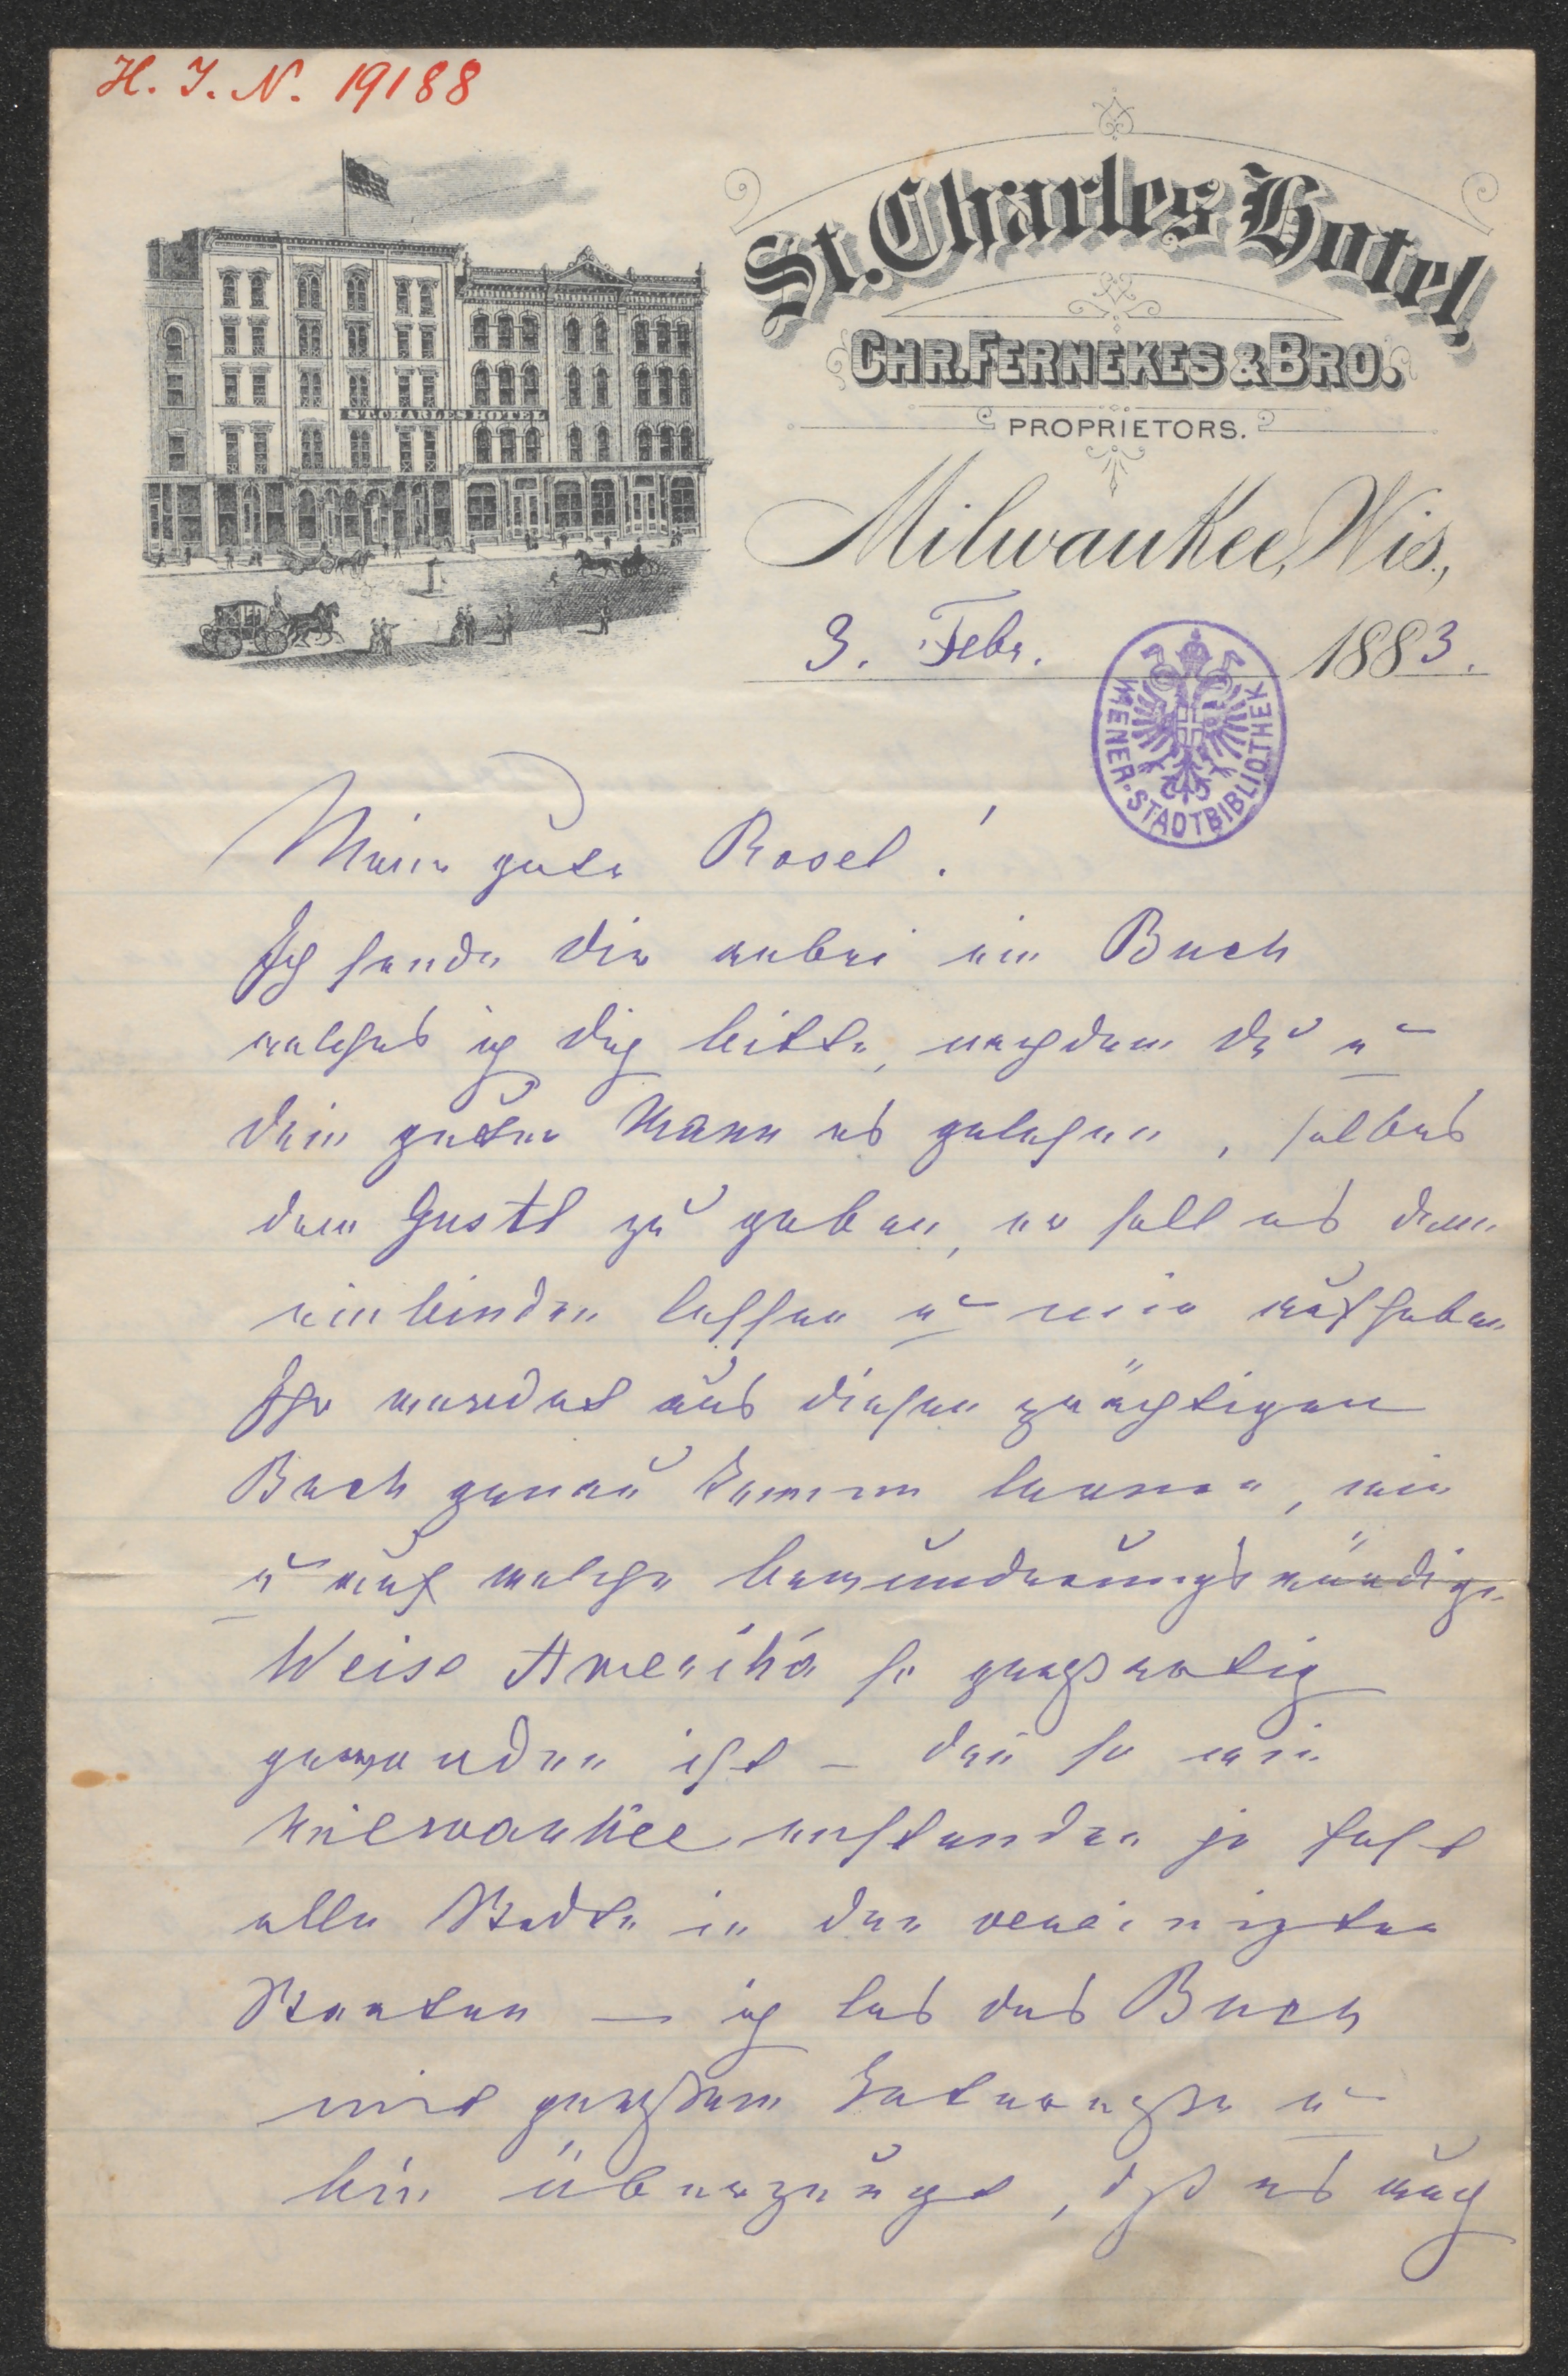 H. I. N. 19188
St. Charles Hotel,
CHR. FERNEKES & BRO.
PROPRIETORS.
ST. CHARLES HOTEL
Milwaukee, Wis.,
3. Febr. 1883.
WIENER-STADTBIBLIOTHEK
Meine gute Rosel!
Ich sende dir anbei ein Buch
welches ich dich bitte, nachdem du u
dein guter Mann es gelesen, selbes
dem Gustl zu geben, er soll es dann
einbinden lassen u mir aufheben
Ihr werdet aus diesen prächtigen
Buch genau kennen lernen, wie
u auf welche bewunderungswürdige
Weise Amerika so großartig
geworden ist – den so wie
Milwaukee enstanden ja fast
alle Stadte in den vereinigten
Staaten — ich las das Buch
mit großem Interesse u
bin überzeugt, dß es auch